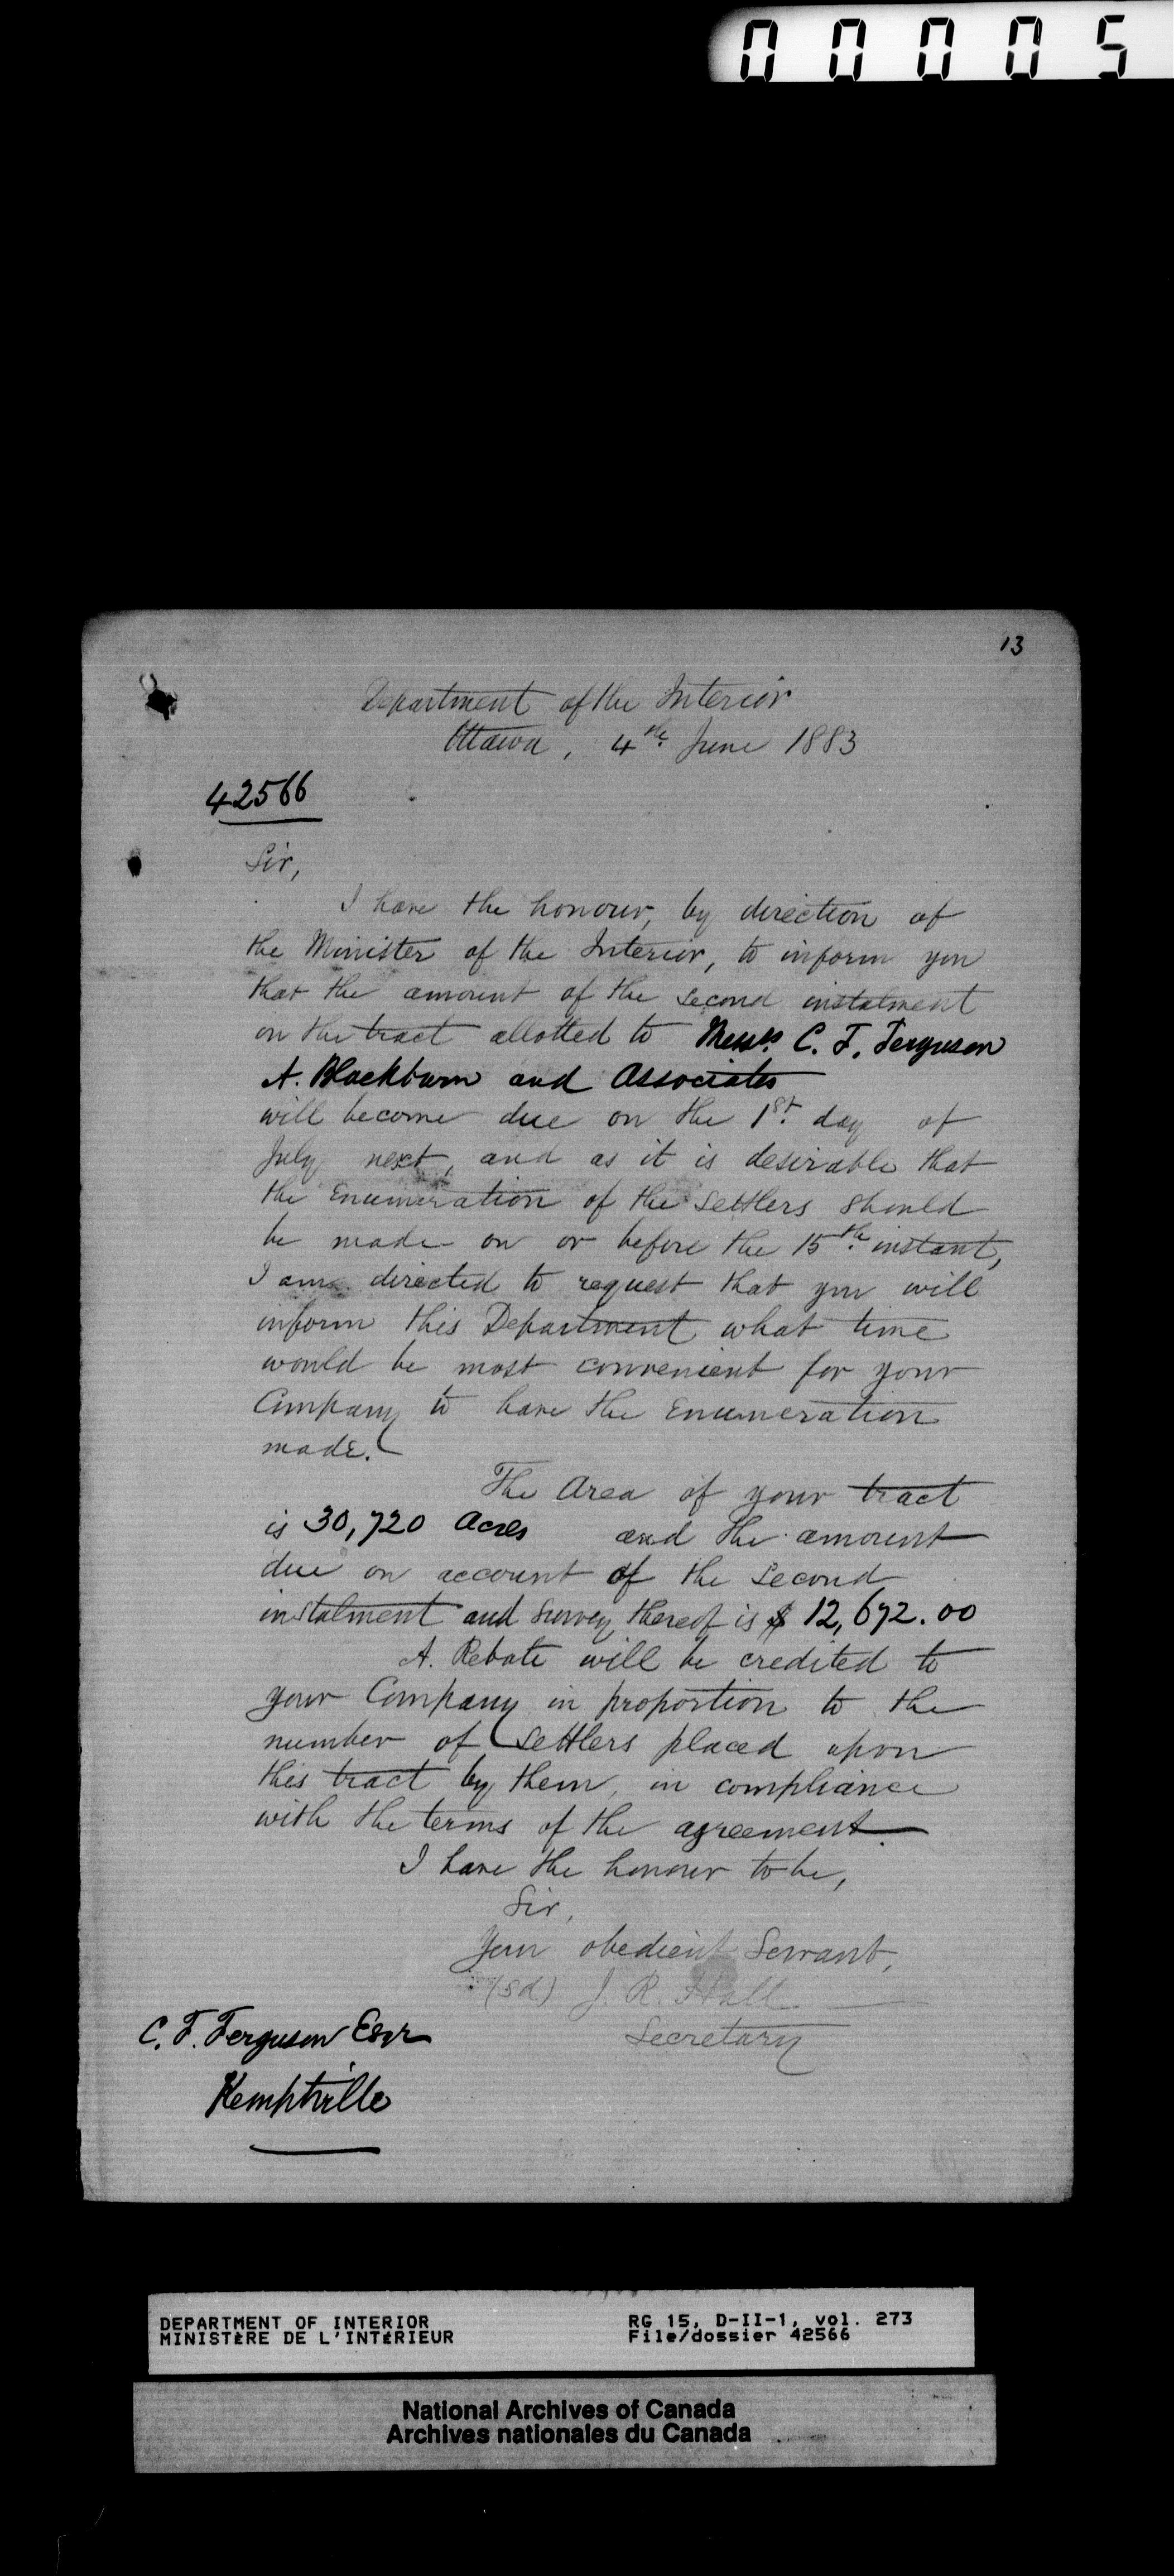 00005
13
Department of the Interior
Ottawa, 4th June 1883
42566
Sir,
I have the honour, by direction of
the Minister of the Interior, to inform you
that the amount of the second instalment
on the tract allotted to Messrs C. F. Ferguson
A. Blackburn and Associates
will become due on the 1st day of
July next, and as it is desirable that
the Enumeration of the Settlers should
be made on or before the 15th instant,
I am directed to request that you will
inform this Department what time
would be most convenient for your
Company to have the Enumeration
made.
The Area of your tract
is 30,720 Acres and the amount
due on account of the Second
instalment and Survey thereof is $ 12,672.00
A. Rebate will be credited to
your Company in proportion to the
number of Settlers placed upon
this tract by them, in compliance
with the terms of the agreement.
I have the honour to be,
Sir,
Your obedient Servant,
(sd) J. R. Hall
Secretary
C. F. Ferguson Esqr
Kemptville
DEPARTMENT OF INTERIOR RG 15, D-II-1, vol. 273
MINISTÈRE DE L'INTÉRIEUR File/dossier 42566
National Archives of Canada
Archives nationales du Canada